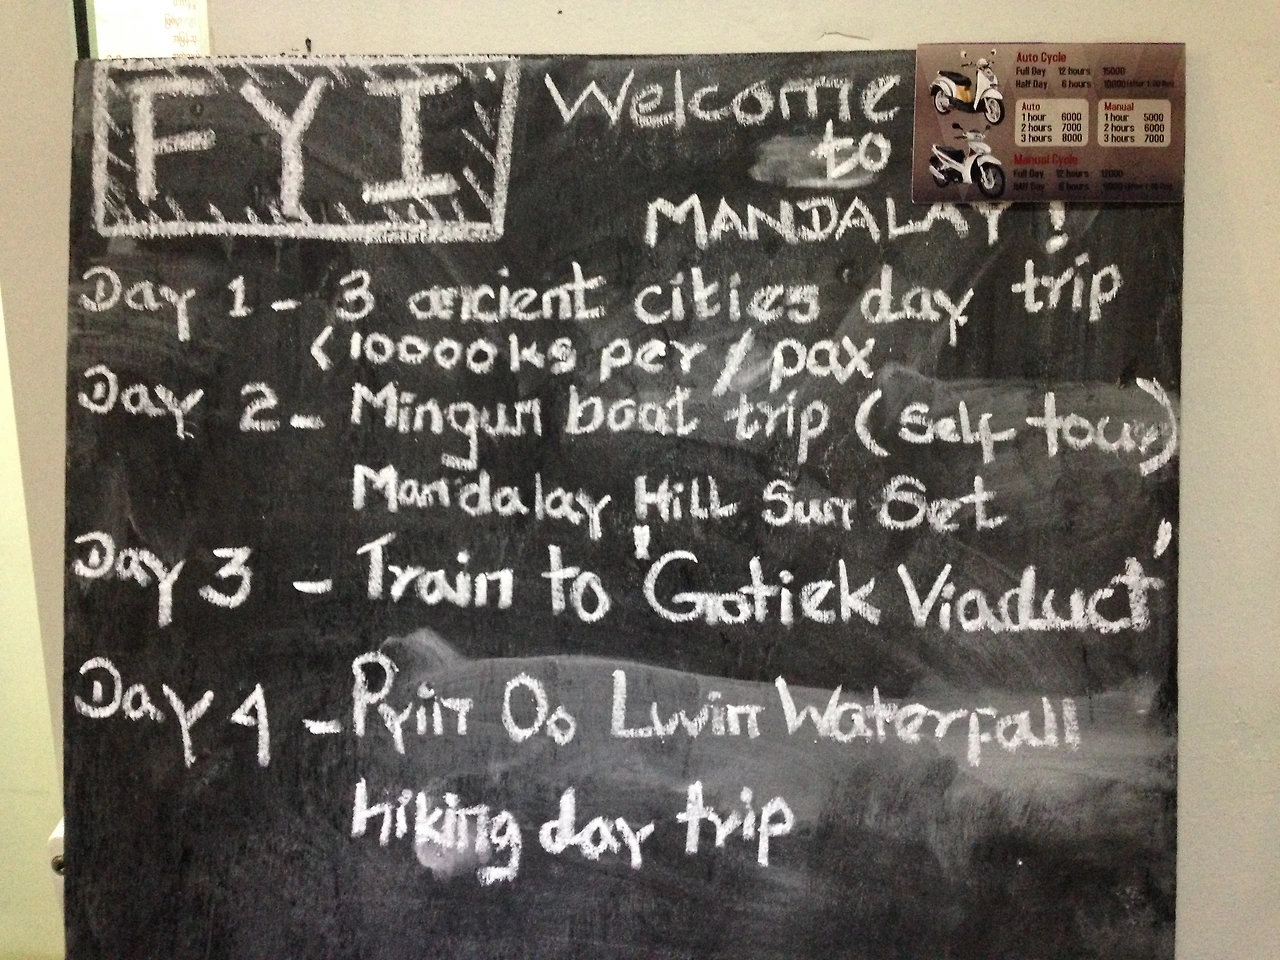 FYI
Welcome
to
MANDALAY !
Day 1 - 3 ancient cities day trip
<10000ks per / pax
Day 2 - Mingun boat trip (Self tour)
Mandalay Hill Sun Set
Day 3 - Train to 'Gotiek Viaduct'
Day 4 - Pyin Oo Lwin Waterfall
hiking day trip
Auto Cycle
Full Day 12 hours 15000
Half Day 6 hours 10000
Auto
1 hour 6000
2 hours 7000
3 hours 8000
Manual
1 hour 5000
2 hours 6000
3 hours 7000
Manual Cycle
Full Day 12 hours 12000
Half Day 6 hours